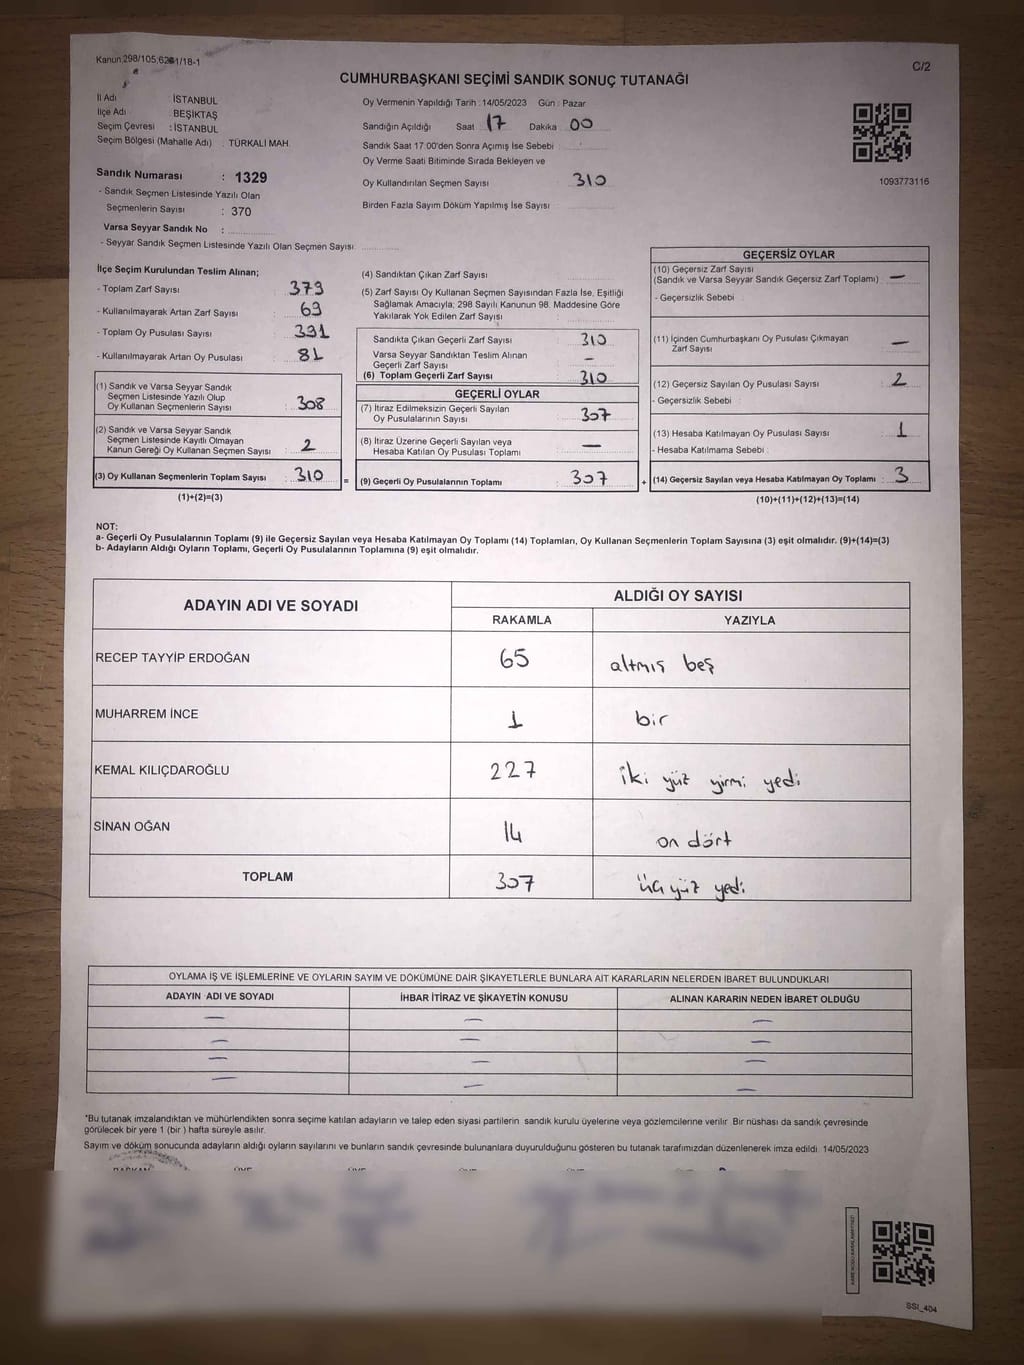 Kanun:298/105;6261/18-1
C/2
CUMHURBAŞKANI SEÇİMİ SANDIK SONUÇ TUTANAĞI
İl Adı İSTANBUL
İlçe Adı BEŞİKTAŞ
Seçim Çevresi : İSTANBUL
Seçim Bölgesi (Mahalle Adı) : TÜRKALİ MAH.
Sandık Numarası : 1329
- Sandık Seçmen Listesinde Yazılı Olan
Seçmenlerin Sayısı : 370
Varsa Seyyar Sandık No :
- Seyyar Sandık Seçmen Listesinde Yazılı Olan Seçmen Sayısı
Oy Vermenin Yapıldığı Tarih : 14/05/2023 Gün : Pazar
Sandığın Açıldığı Saat 17 Dakika 00
Sandık Saat 17:00'den Sonra Açımış İse Sebebi
Oy Verme Saati Bitiminde Sırada Bekleyen ve
Oy Kullandırılan Seçmen Sayısı 310
Birden Fazla Sayım Döküm Yapılmış İse Sayısı
1093773116
İlçe Seçim Kurulundan Teslim Alınan;
- Toplam Zarf Sayısı : 373
- Kullanılmayarak Artan Zarf Sayısı : 63
- Toplam Oy Pusulası Sayısı : 391
- Kullanılmayarak Artan Oy Pusulası : 81
(1) Sandık ve Varsa Seyyar Sandık
Seçmen Listesinde Yazılı Olup
Oy Kullanan Seçmenlerin Sayısı : 308
(2) Sandık ve Varsa Seyyar Sandık
Seçmen Listesinde Kayıtlı Olmayan
Kanun Gereği Oy Kullanan Seçmen Sayısı : 2
(3) Oy Kullanan Seçmenlerin Toplam Sayısı : 310
(1)+(2)=(3)
(4) Sandıktan Çıkan Zarf Sayısı
(5) Zarf Sayısı Oy Kullanan Seçmen Sayısından Fazla İse, Eşitliği
Sağlamak Amacıyla; 298 Sayılı Kanunun 98. Maddesine Göre
Yakılarak Yok Edilen Zarf Sayısı
Sandıkta Çıkan Geçerli Zarf Sayısı : 310
Varsa Seyyar Sandıktan Teslim Alınan
Geçerli Zarf Sayısı : –
(6) Toplam Geçerli Zarf Sayısı : 310
GEÇERLİ OYLAR
(7) İtiraz Edilmeksizin Geçerli Sayılan
Oy Pusulalarının Sayısı : 307
(8) İtiraz Üzerine Geçerli Sayılan veya
Hesaba Katılan Oy Pusulası Toplamı : —
= (9) Geçerli Oy Pusulalarının Toplamı : 307
GEÇERSİZ OYLAR
(10) Geçersiz Zarf Sayısı
(Sandık ve Varsa Seyyar Sandık Geçersiz Zarf Toplamı) : —
- Geçersizlik Sebebi
(11) İçinden Cumhurbaşkanı Oy Pusulası Çıkmayan
Zarf Sayısı : —
(12) Geçersiz Sayılan Oy Pusulası Sayısı : 2
- Geçersizlik Sebebi :
(13) Hesaba Katılmayan Oy Pusulası Sayısı : 1
- Hesaba Katılmama Sebebi :
+ (14) Geçersiz Sayılan veya Hesaba Katılmayan Oy Toplamı : 3
(10)+(11)+(12)+(13)=(14)
NOT:
a- Geçerli Oy Pusulalarının Toplamı (9) ile Geçersiz Sayılan veya Hesaba Katılmayan Oy Toplamı (14) Toplamları, Oy Kullanan Seçmenlerin Toplam Sayısına (3) eşit olmalıdır. (9)+(14)=(3)
b- Adayların Aldığı Oyların Toplamı, Geçerli Oy Pusulalarının Toplamına (9) eşit olmalıdır.
ADAYIN ADI VE SOYADI
ALDIĞI OY SAYISI
RAKAMLA YAZIYLA
RECEP TAYYİP ERDOĞAN 65 altmış beş
MUHARREM İNCE 1 bir
KEMAL KILIÇDAROĞLU 227 iki yüz yirmi yedi
SİNAN OĞAN 14 on dört
TOPLAM 307 üç yüz yedi
OYLAMA İŞ VE İŞLEMLERİNE VE OYLARIN SAYIM VE DÖKÜMÜNE DAİR ŞİKAYETLERLE BUNLARA AİT KARARLARIN NELERDEN İBARET BULUNDUKLARI
ADAYIN ADI VE SOYADI İHBAR İTİRAZ VE ŞİKAYETİN KONUSU ALINAN KARARIN NEDEN İBARET OLDUĞU
— — —
— — —
— — —
— — —
*Bu tutanak imzalandıktan ve mühürlendikten sonra seçime katılan adayların ve talep eden siyasi partilerin sandık kurulu üyelerine veya gözlemcilerine verilir. Bir nüshası da sandık çevresinde
görülecek bir yere 1 (bir ) hafta süreyle asılır.
Sayım ve döküm sonucunda adayların aldığı oyların sayılarını ve bunların sandık çevresinde bulunanlara duyurulduğunu gösteren bu tutanak tarafımızdan düzenlenerek imza edildi. 14/05/2023
SSI_404